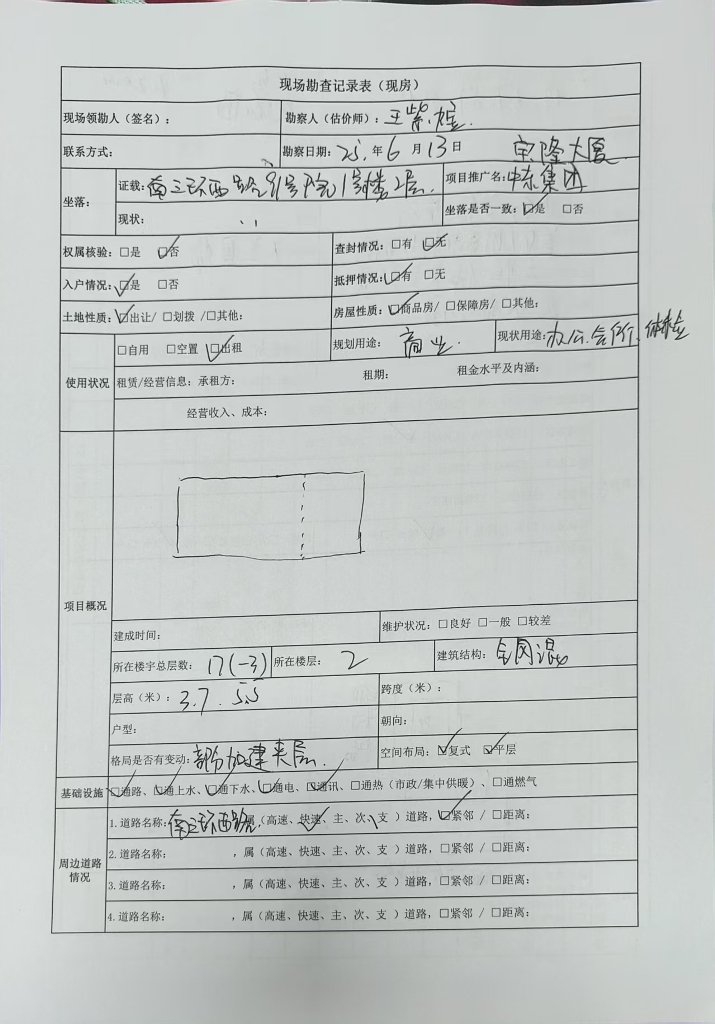 现场勘查记录表（现房）
现场领勘人（签名）： 勘察人（估价师）：王紫
联系方式： 勘察日期：25.年6月13日
宗隆大厦
坐落： 证载：南三环西路91号院1号楼2层. 项目推广名：中东集团
现状： 坐落是否一致：☑是 □否
权属核验：□是 ☑否 查封情况：□有 ☑无
入户情况：☑是 □否 抵押情况：☑有 □无
土地性质：☑出让/ □划拨 /□其他： 房屋性质：☑商品房/ □保障房/ □其他：
使用状况 □自用 □空置 ☑出租 规划用途：商业. 现状用途：办公.
租赁/经营信息：承租方： 租期： 租金水平及内涵：
经营收入、成本：
项目概况
建成时间： 维护状况：□良好 □一般 □较差
所在楼宇总层数：17(-3) 所在楼层：2 建筑结构：钢混
层高（米）：3.7 . 5.5 跨度（米）：
户型： 朝向：
格局是否有变动：部分加建夹层. 空间布局：☑复式 ☑平层
基础设施 ☑通路、☑通上水、☑通下水、☑通电、☑通讯、□通热（市政/集中供暖）、□通燃气
周边道路情况 1.道路名称：南三环西路，属（高速、快速、主、次、支 ）道路，☑紧邻 / □距离：
2.道路名称： ，属（高速、快速、主、次、支 ）道路，□紧邻 / □距离：
3.道路名称： ，属（高速、快速、主、次、支 ）道路，□紧邻 / □距离：
4.道路名称： ，属（高速、快速、主、次、支 ）道路，□紧邻 / □距离：